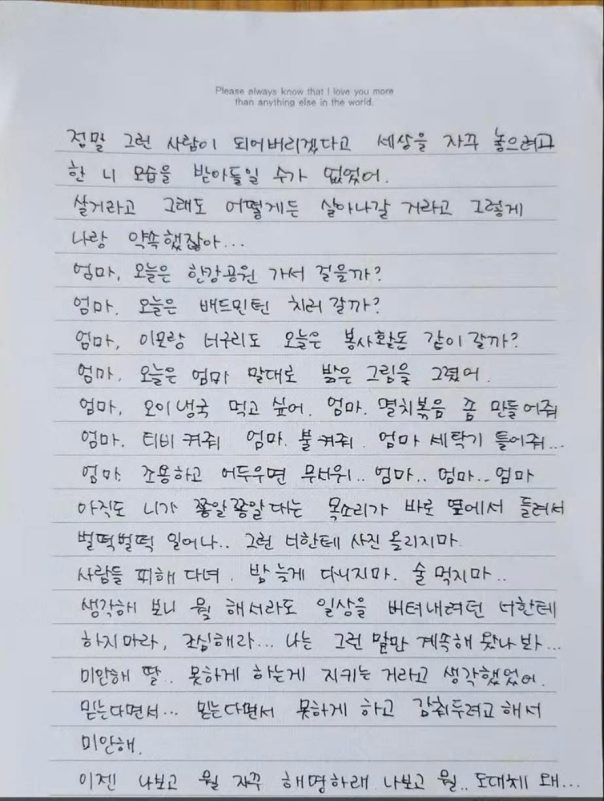 Please always know that I love you more
than anything else in the world.
정말 그런 사람이 되어버리겠다고 세상을 자꾸 놓으려고
한 니 모습을 받아들일 수가 없었어.
살거라고 그래도 어떻게든 살아나갈 거라고 그렇게
나랑 약속했잖아...
엄마, 오늘은 한강공원 가서 걸을까?
엄마, 오늘은 배드민턴 치러 갈까?
엄마, 이모랑 너구리도 오늘은 봉사활돈 같이 갈까?
엄마, 오늘은 엄마 말대로 밝은 그림을 그렸어.
엄마, 오이냉국 먹고 싶어. 엄마. 멸치볶음 좀 만들어줘
엄마. 티비 켜줘 엄마. 불 켜줘. 엄마 세탁기 틀어줘...
엄마. 조용하고 어두우면 무서워.. 엄마... 엄마.. 엄마
아직도 니가 쫑알쫑알 대는 목소리가 바로 옆에서 들려서
벌떡벌떡 일어나.. 그런 너한테 사진 올리지마.
사람들 피해 다녀. 밤 늦게 다니지마. 술 먹지마..
생각해 보니 뭘 해서라도 일상을 버텨내려던 너한테
하지마라, 조심해라... 나는 그런 말만 계속해 왔나 봐...
미안해 딸. 못하게 하는게 지키는 거라고 생각했었어.
믿는다면서... 믿는다면서 못하게 하고 감춰두려고 해서
미안해.
이젠 나보고 뭘 자꾸 해명하래 나보고 뭘.. 도대체 왜...